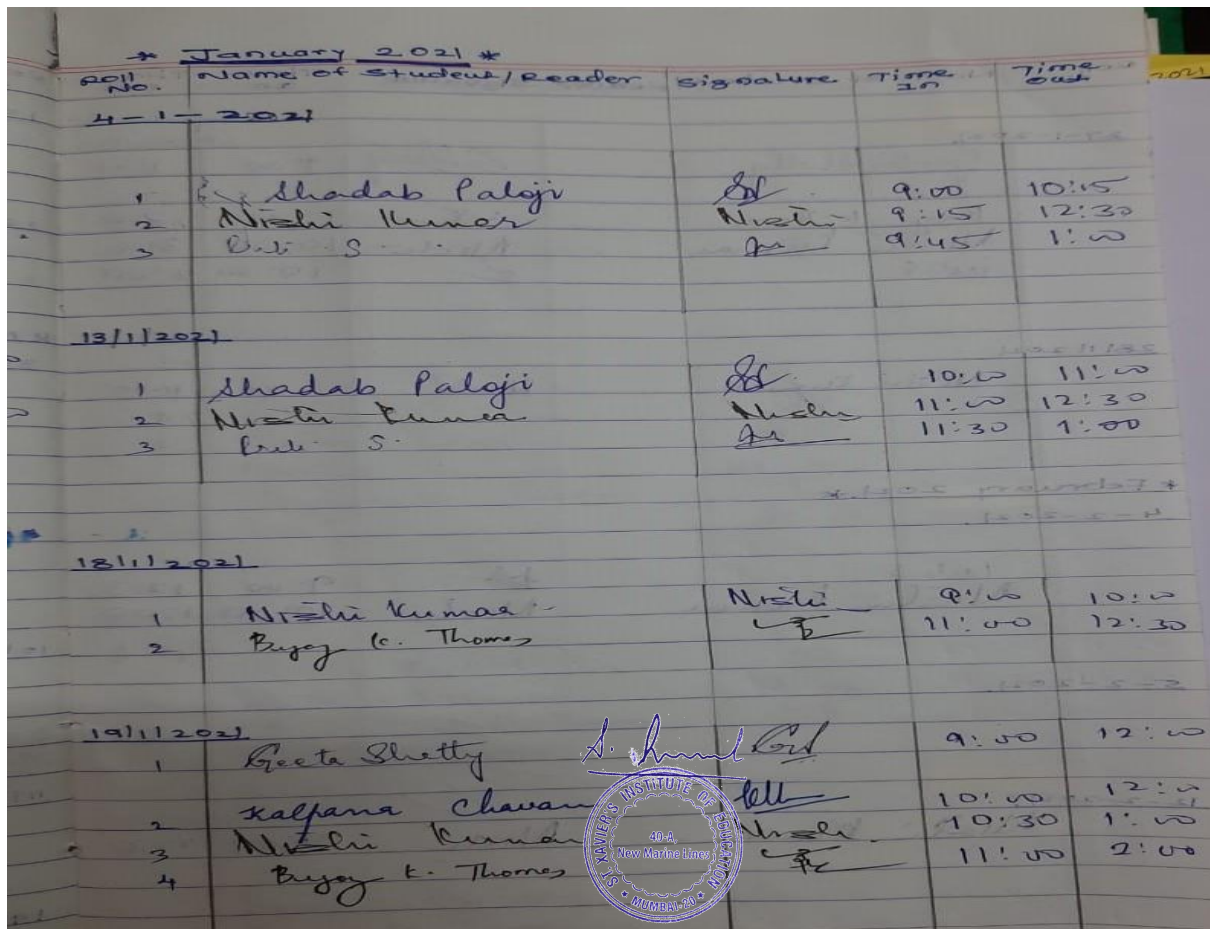 * January 2021 *
Roll No. Name of Student/Reader Signature Time In Time Out
2021
4-1-2021
1 Shadab Paloji 9:00 10:15
2 Nishi Kumar Nishi 9:15 12:30
3 S. 9:45 1:00
13/1/2021
1 Shadab Paloji 10:00 11:00
2 Nishi Kumar Nishi 11:00 12:30
3 S. 11:30 1:00
18/1/2021
1 Nishi Kumar Nishi 9:00 10:00
2 Bijoy K. Thomas 11:00 12:30
19/1/2021
1 Geeta Shetty 9:00 12:00
2 Kalpana Chavan 10:00 12:00
3 Nishi Kumar Nishi 10:30 1:00
4 Bijoy K. Thomas 11:00 2:00
ST. XAVIER'S INSTITUTE OF EDUCATION
40-A,
New Marine Lines
* MUMBAI-20 *